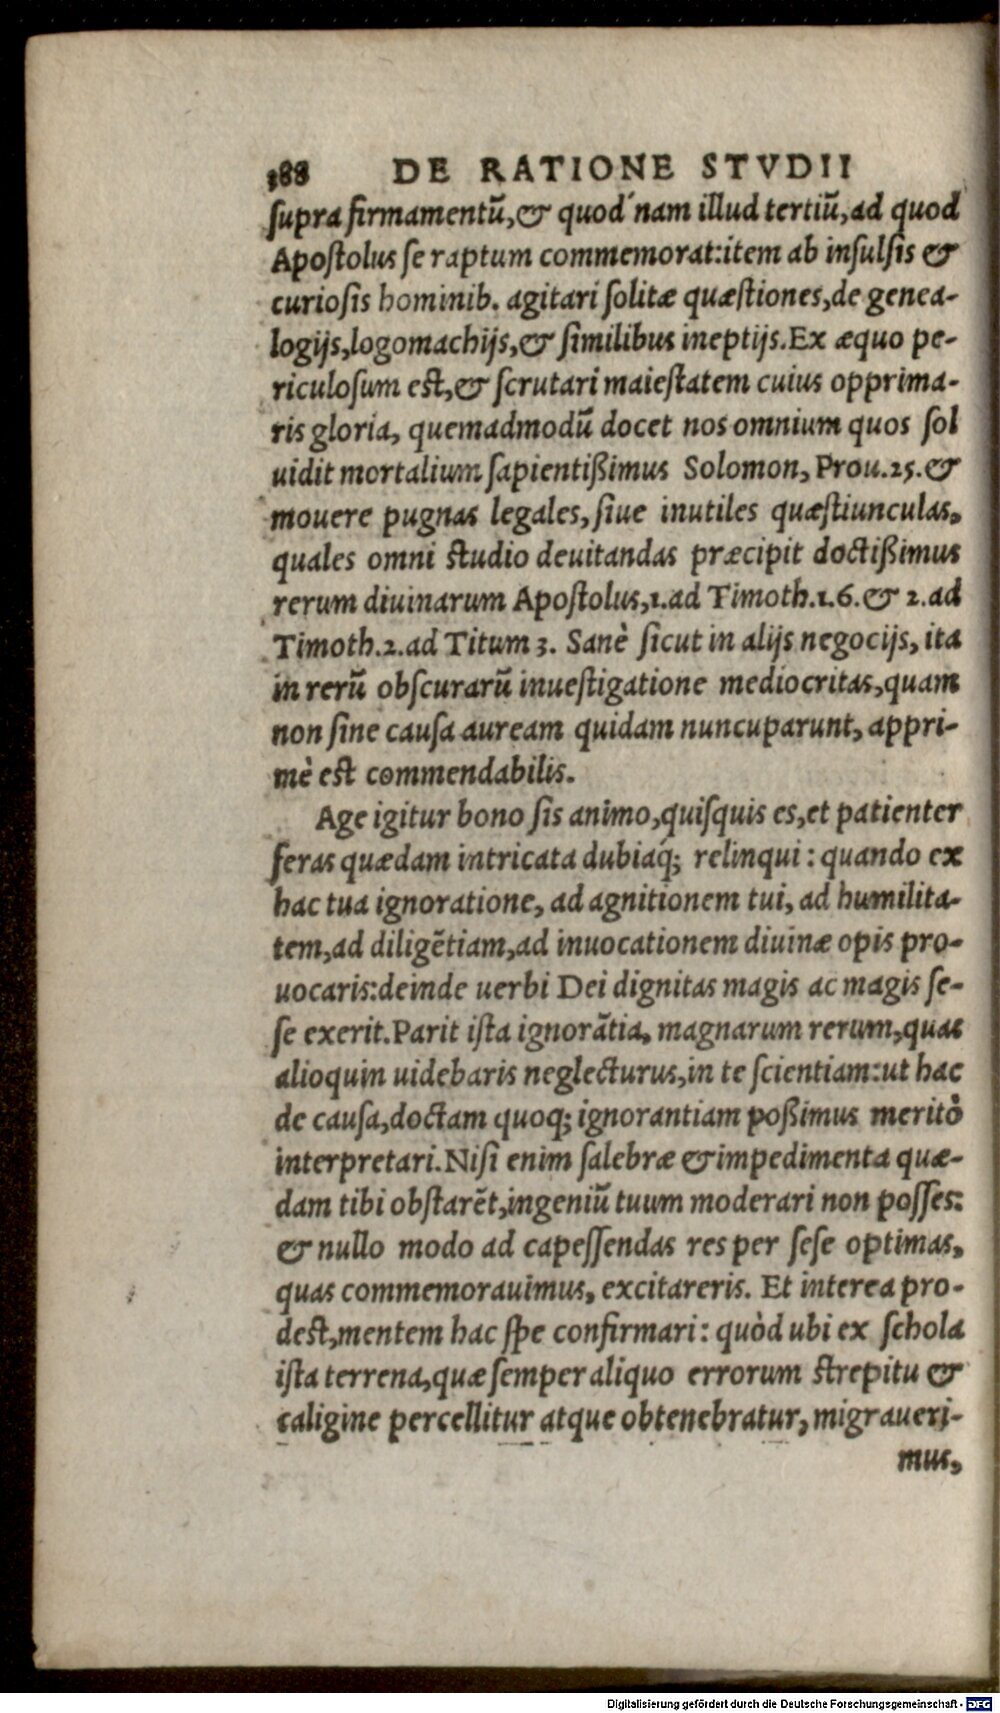 188 DE RATIONE STVDII
supra firmamentũ,& quod'nam illud tertiũ,ad quod
Apostolus se raptum commemorat:item ab insulsis &
curiosis hominib. agitari solitæ quæstiones,de genea-
logijs,logomachijs,& similibus ineptijs.Ex æquo pe-
riculosum est,& scrutari maiestatem cuius opprima-
ris gloria, quemadmodũ docet nos omnium quos sol
uidit mortalium sapientißimus Solomon, Prou.25.&
mouere pugnas legales, siue inutiles quæstiunculas,
quales omni studio deuitandas præcipit doctißimus
rerum diuinarum Apostolus,1.ad Timoth.1.6.& 2.ad
Timoth.2.ad Titum 3. Sanè sicut in alijs negocijs, ita
in rerũ obscurarũ inuestigatione mediocritas,quam
non sine causa auream quidam nuncuparunt, appri-
mè est commendabilis.
Age igitur bono sis animo,quisquis es,et patienter
feras quædam intricata dubiaq́; relinqui : quando ex
hac tua ignoratione, ad agnitionem tui, ad humilita-
tem,ad diligẽtiam,ad inuocationem diuinæ opis pro-
uocaris:deinde uerbi Dei dignitas magis ac magis se-
se exerit.Parit ista ignorãtia, magnarum rerum,quas
alioquin uidebaris neglecturus,in te scientiam:ut hac
de causa,doctam quoq; ignorantiam poßimus meritò
interpretari.Nisi enim salebræ & impedimenta quæ-
dam tibi obstarẽt,ingeniũ tuum moderari non posses:
& nullo modo ad capessendas res per sese optimas,
quas commemorauimus, excitareris. Et interea pro-
dest,mentem hac spe confirmari: quòd ubi ex schola
ista terrena,quæ semper aliquo errorum strepitu &
caligine percellitur atque obtenebratur, migraueri-
mus,
Digitalisierung gefördert durch die Deutsche Forschungsgemeinschaft - DFG